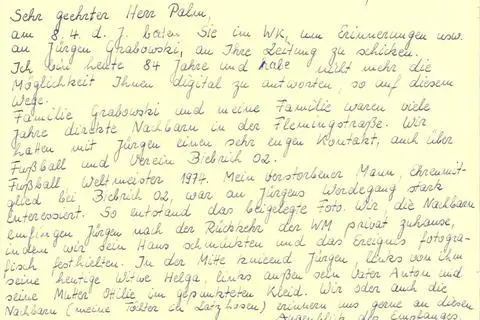 Sehr geehrter Herr Palm,
am 8. 4. d. J. baten Sie im WK, um Erinnerungen usw.
an Jürgen Grabowski, an Ihre Zeitung zu schicken.
Ich bin heute 84 Jahre und habe nicht mehr die
Möglichkeit Ihnen digital zu antworten, so auf diesem
Wege.
Familie Grabowski und meine Familie waren viele
Jahre direkte Nachbarn in der Flemingstraße. Wir
hatten mit Jürgen einen sehr engen Kontakt, auch über
Fußball und Verein Biebrich 02.
Fußball Weltmeister 1974. Mein verstorbener Mann, Ehrenmit-
glied bei Biebrich 02, war an Jürgens Werdegang stark
interessiert. So entstand das beigelegte Foto. Wir die Nachbarn
empfingen Jürgen nach der Rückkehr der WM privat zuhause,
indem wir sein Haus schmückten und das Ereignis fotogra-
fisch festhielten. In der Mitte knieend Jürgen, links von ihm
seine heutige Witwe Helga, links außen sein Vater Anton und
seine Mutter Otilie im gepunkteten Kleid. Wir oder auch die
Nachbarn (meine Töchter in Latzhosen) erinnern uns gerne an diesen
Augenblick des Empfanges.